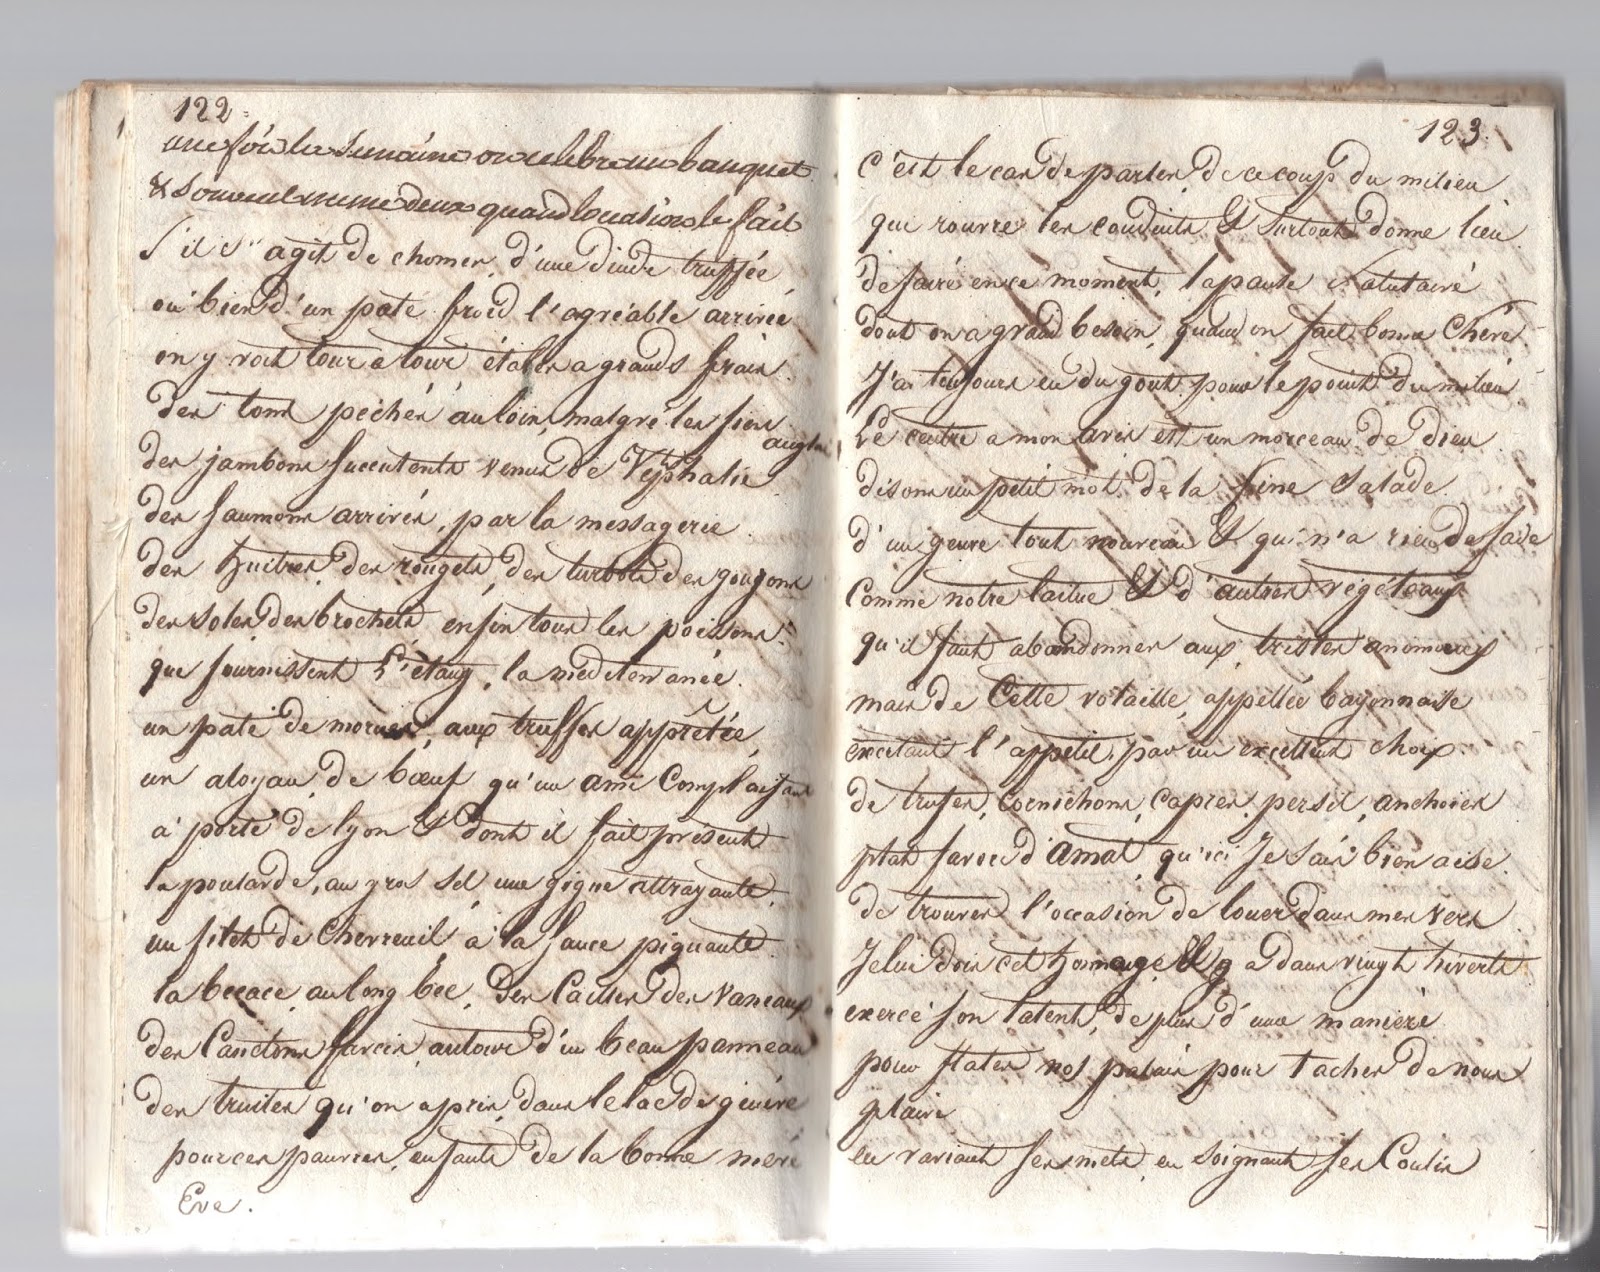 122
une fois la semaine on celebre un banquet
& souvent meme deux quand locations le fait
S'il s'agit de chomer, d'une dinde truffée
ou bien d'un pate froid l'agréable arrivée
on y voit tour a tour étalés a grands frais
des tons péchés au loin, malgré les fiers anglais
des jambons succulents venus de Vesphalie
des saumons arrivés, par la messagerie
des huitres, des rougets, des turbots des goujons
des soles, des brochets enfin tous les poissons
que fournissent l'étang, la mediterranée.
un paté de morues, aux truffes apprêtée
un aloyau, de bœuf qu'un ami complaisant
a porté de lyon & dont il fait présent
la poularde, au gros sel, une gigue attrayante,
un filet de chevreuil a la sauce piquante
la becace, au long béc, des cailles des vaneaux
des canetons farcis, autour d'un beau panneau
des truites qu'on a pris, dans le lac de genève
pour ces pauvres, enfants de la bonne mère
Eve.
123.
C'est le cas de parler, de ce coup du milieu
qui rouvre les conduits & surtout donne lieu
de faire en ce moment, la pause salutaire
dont on a grand besoin, quand on fait bonne chére
J'ai toujours eu du gout pour le point du milieu
Le centre a mon avis est un morceau de dieu
disons un petit mot de la fine salade
d'un genre tout nouveau & qui n'a rien de fade
comme notre laitue & d'autres végétaux
qu'il faut abandonner aux tristes animaux
mais de cette volaille, appellée bayonnaise
excitant l'appetit, par un excellent choix
de trufes, cornichons, capres, persil, anchoies
plat favori d'amat, qu'ici Je sais bien aise
de trouver l'occasion de louer dans mes vers
Je lui dois cet hommage Il y a dans vingt hiverts
exercé son talent, de plus d'une maniere
pour flater nos palais pour tacher de nous
plaire
en variant ses mets, en soignant ses coulis